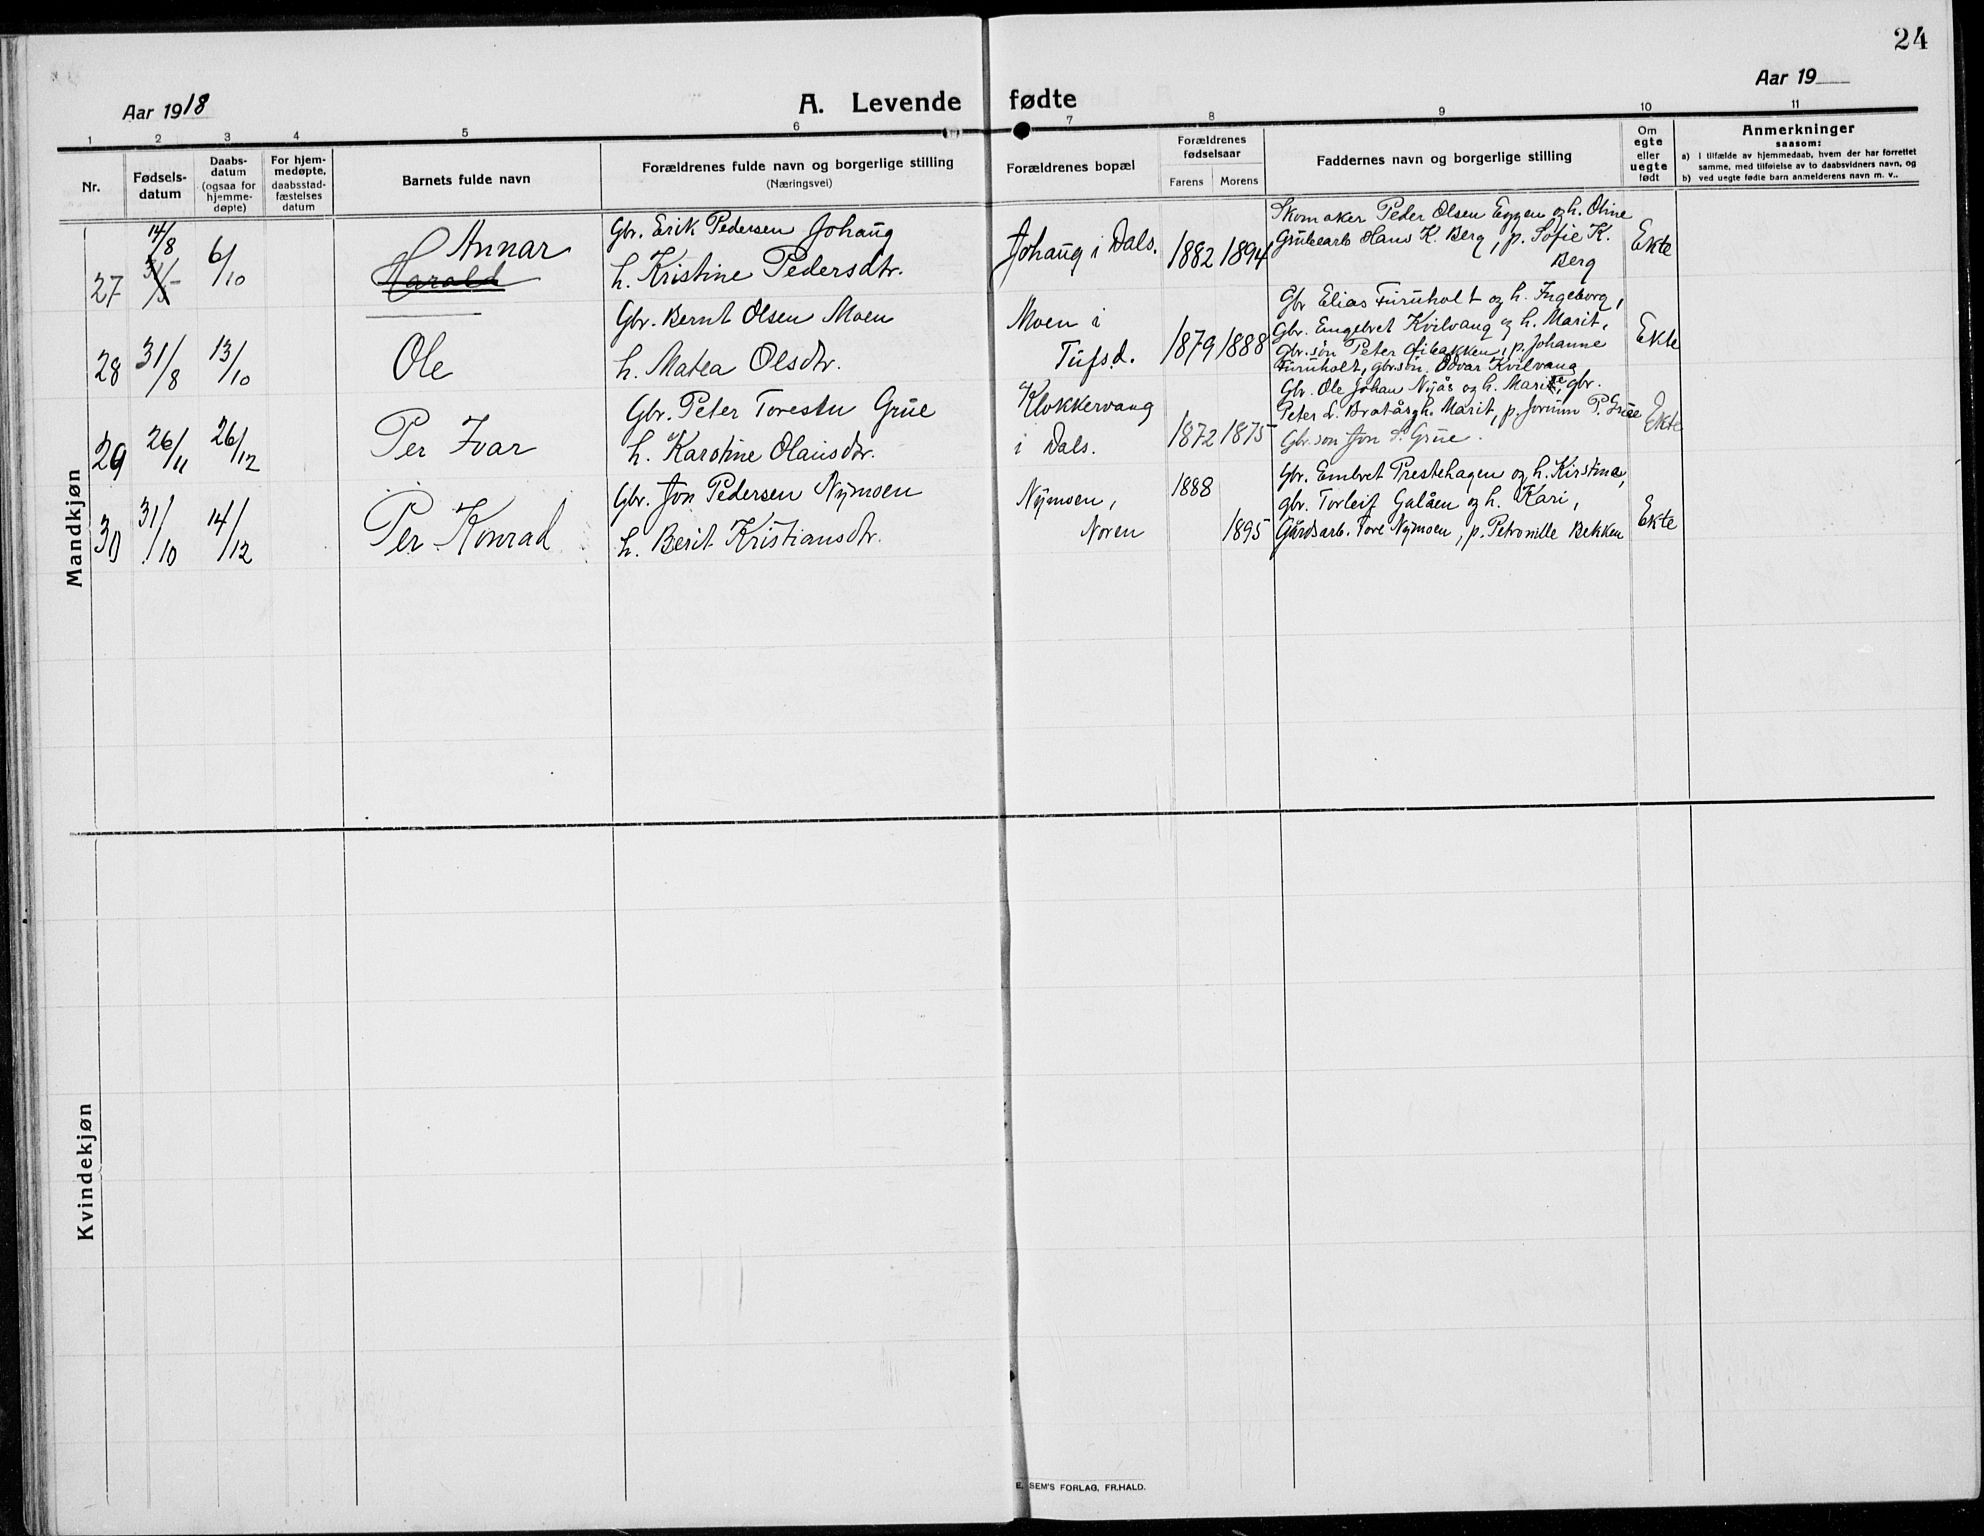 24
Aar 1918
A. Levende fødte
Aar 19
1 2 3 4 5 6 7 8 9 10 11
Nr.
Fødsels-
datum
Daabs-
datum
(ogsaa for
hjemme-
døpte)
For hjem-
medøpte,
daabsstad-
fæstelses
datum
Barnets fulde navn
Forældrenes fulde navn og borgerlige stilling
(Næringsvei)
Forældrenes bopæl
Forældrenes
fødselsaar
Farens Morens
Faddernes navn og borgerlige stilling
Om
egte
eller
uegte
født
Anmerkninger
saasom:
a) I tilfælde av hjemmedaab, hvem der har forrettet
samme, med tilføielse av to daabsvidners navn, og
b) ved uegte fødte barn anmelderens navn m. v..
Mandkjøn
27
14/8
6/10
Annar
Harald
Gbr. Erik Pedersen Johaug
h. Kristine Pedersdtr.
Johaug i Dals.
1882 1894
Skomaker Peder Olsen Eggen og h. Oline
Grubearb Hans K. Berg, p. Sofie K.
Berg
Ekte
28
31/8
13/10
Ole
Gbr. Bernt Olsen Moen
h. Matea Olsdtr.
Moen i
Tufsd.
1879 1888
Gbr Elias Furuholt og h. Ingeborg,
Gbr. Engebret Kvilvang og h. Marit,
gbr.søn Peter Libakken, p. Johanne
Furuholt, gbr.søn. Odvar Kvilvang
Ekte
29
26/11
26/12
Per Ivar
Gbr. Peter Toresen Grue
h. Karoline Olausdtr.
Klokkervang
i Dals.
1872 1875
Gbr. Ole Johan Nyås og h. Marie, gbr.
Peter L. Bratås h. Marit, p. Jorunn P. Grue
Gbr.søn Jon P. Grue.
Ekte
30
31/10
14/12
Per Konrad
Gbr. Jon Pedersen Nymoen
h. Berit Kristiansdtr.
Nymoen,
Noren
1888
1895
Gbr. Embret Prestehagen og h. Kirstine,
gbr. Torleif Galåen og h. Kari,
Gårdsarb. Tore Nymoen, p. Petronille Bekken
Ekte
Kvindekjøn
E. SEM'S FORLAG, FR.HALD.